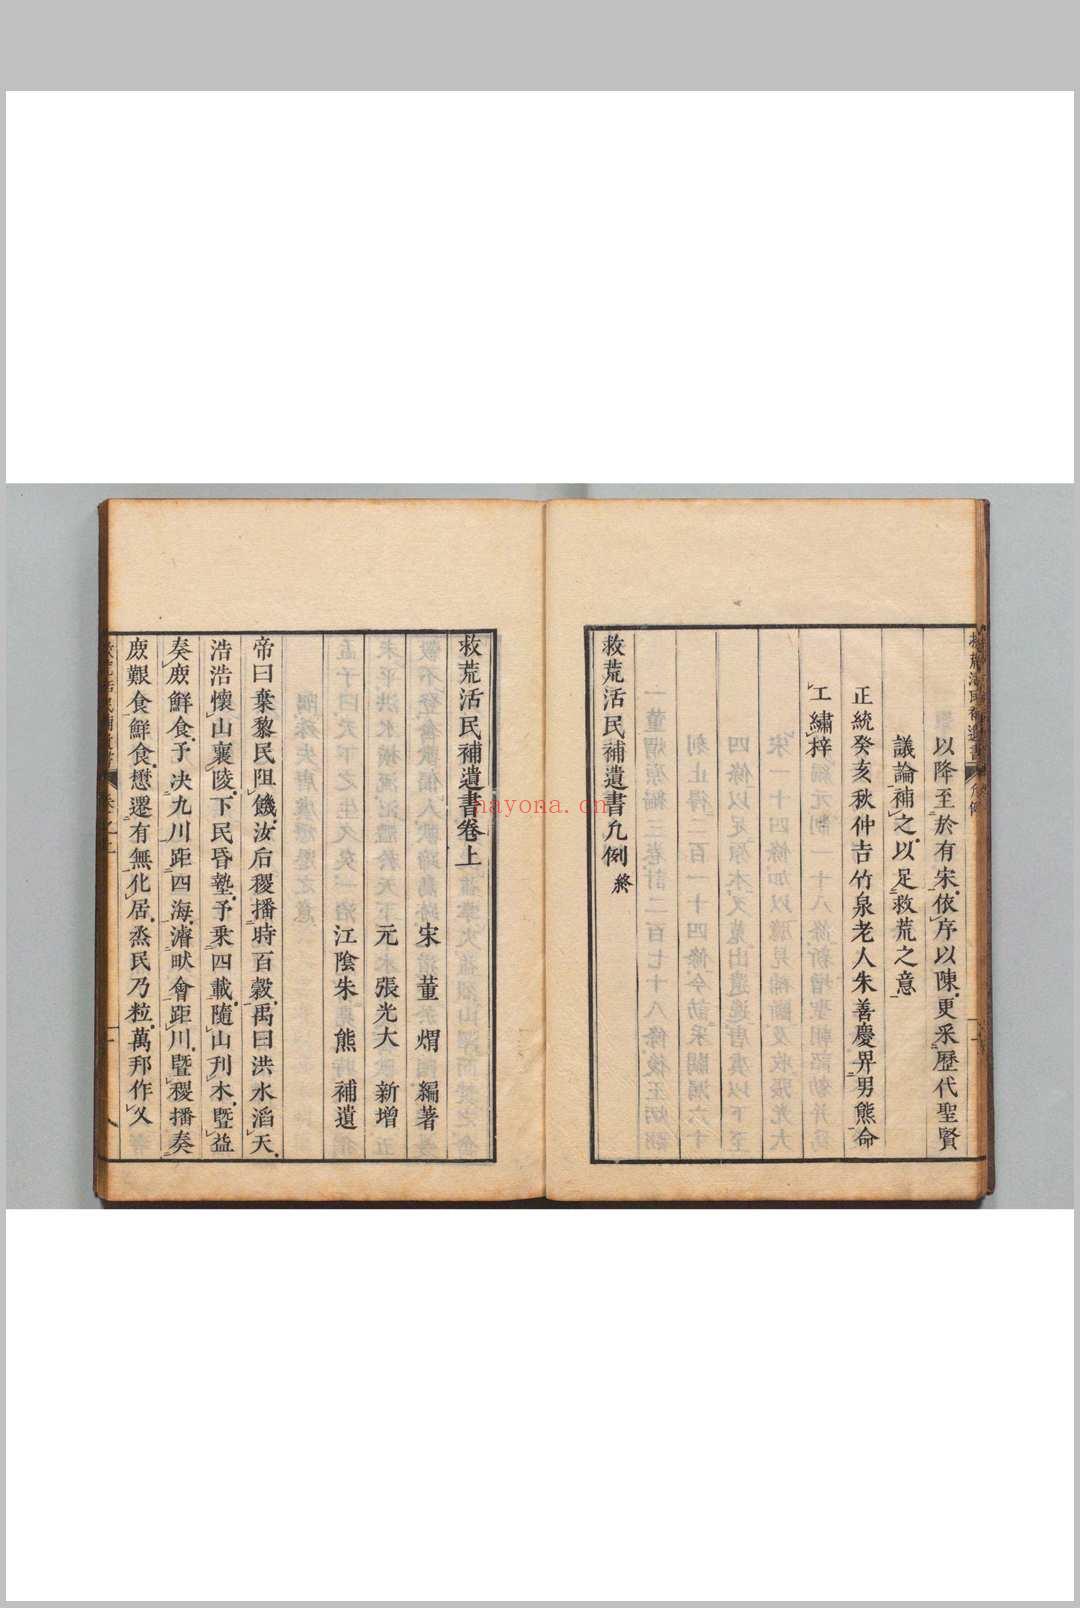 以降至於有宋依序以陳更采歷代聖賢
議論補之以足救荒之意
正統癸亥秋仲吉竹泉老人朱善慶畀男熊命
工繡梓
救荒活民補遺書凢例終
救荒活民補遺書卷上
宋董煟編著
元張光大新增
江陰朱熊補遺
帝曰棄黎民阻饑汝后稷播時百穀禹曰洪水滔天
浩浩懷山襄陵下民昏墊予乗四載隨山刋木暨益
奏庻鮮食予決九川距四海濬畎會距川暨稷播奏
庻艱食鮮食懋遷有無化居烝民乃粒萬邦作乂
nayona.cn